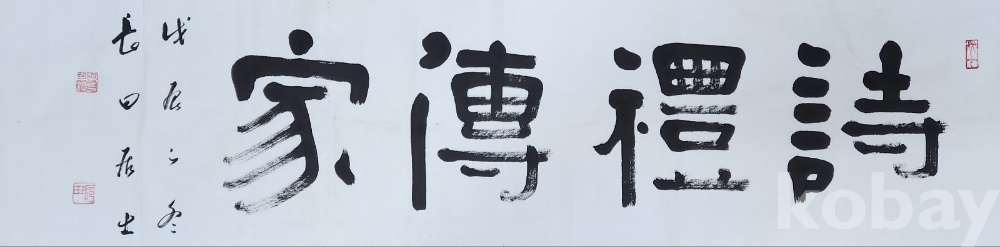 詩禮傳家
戊辰之冬
長田居士
kobay